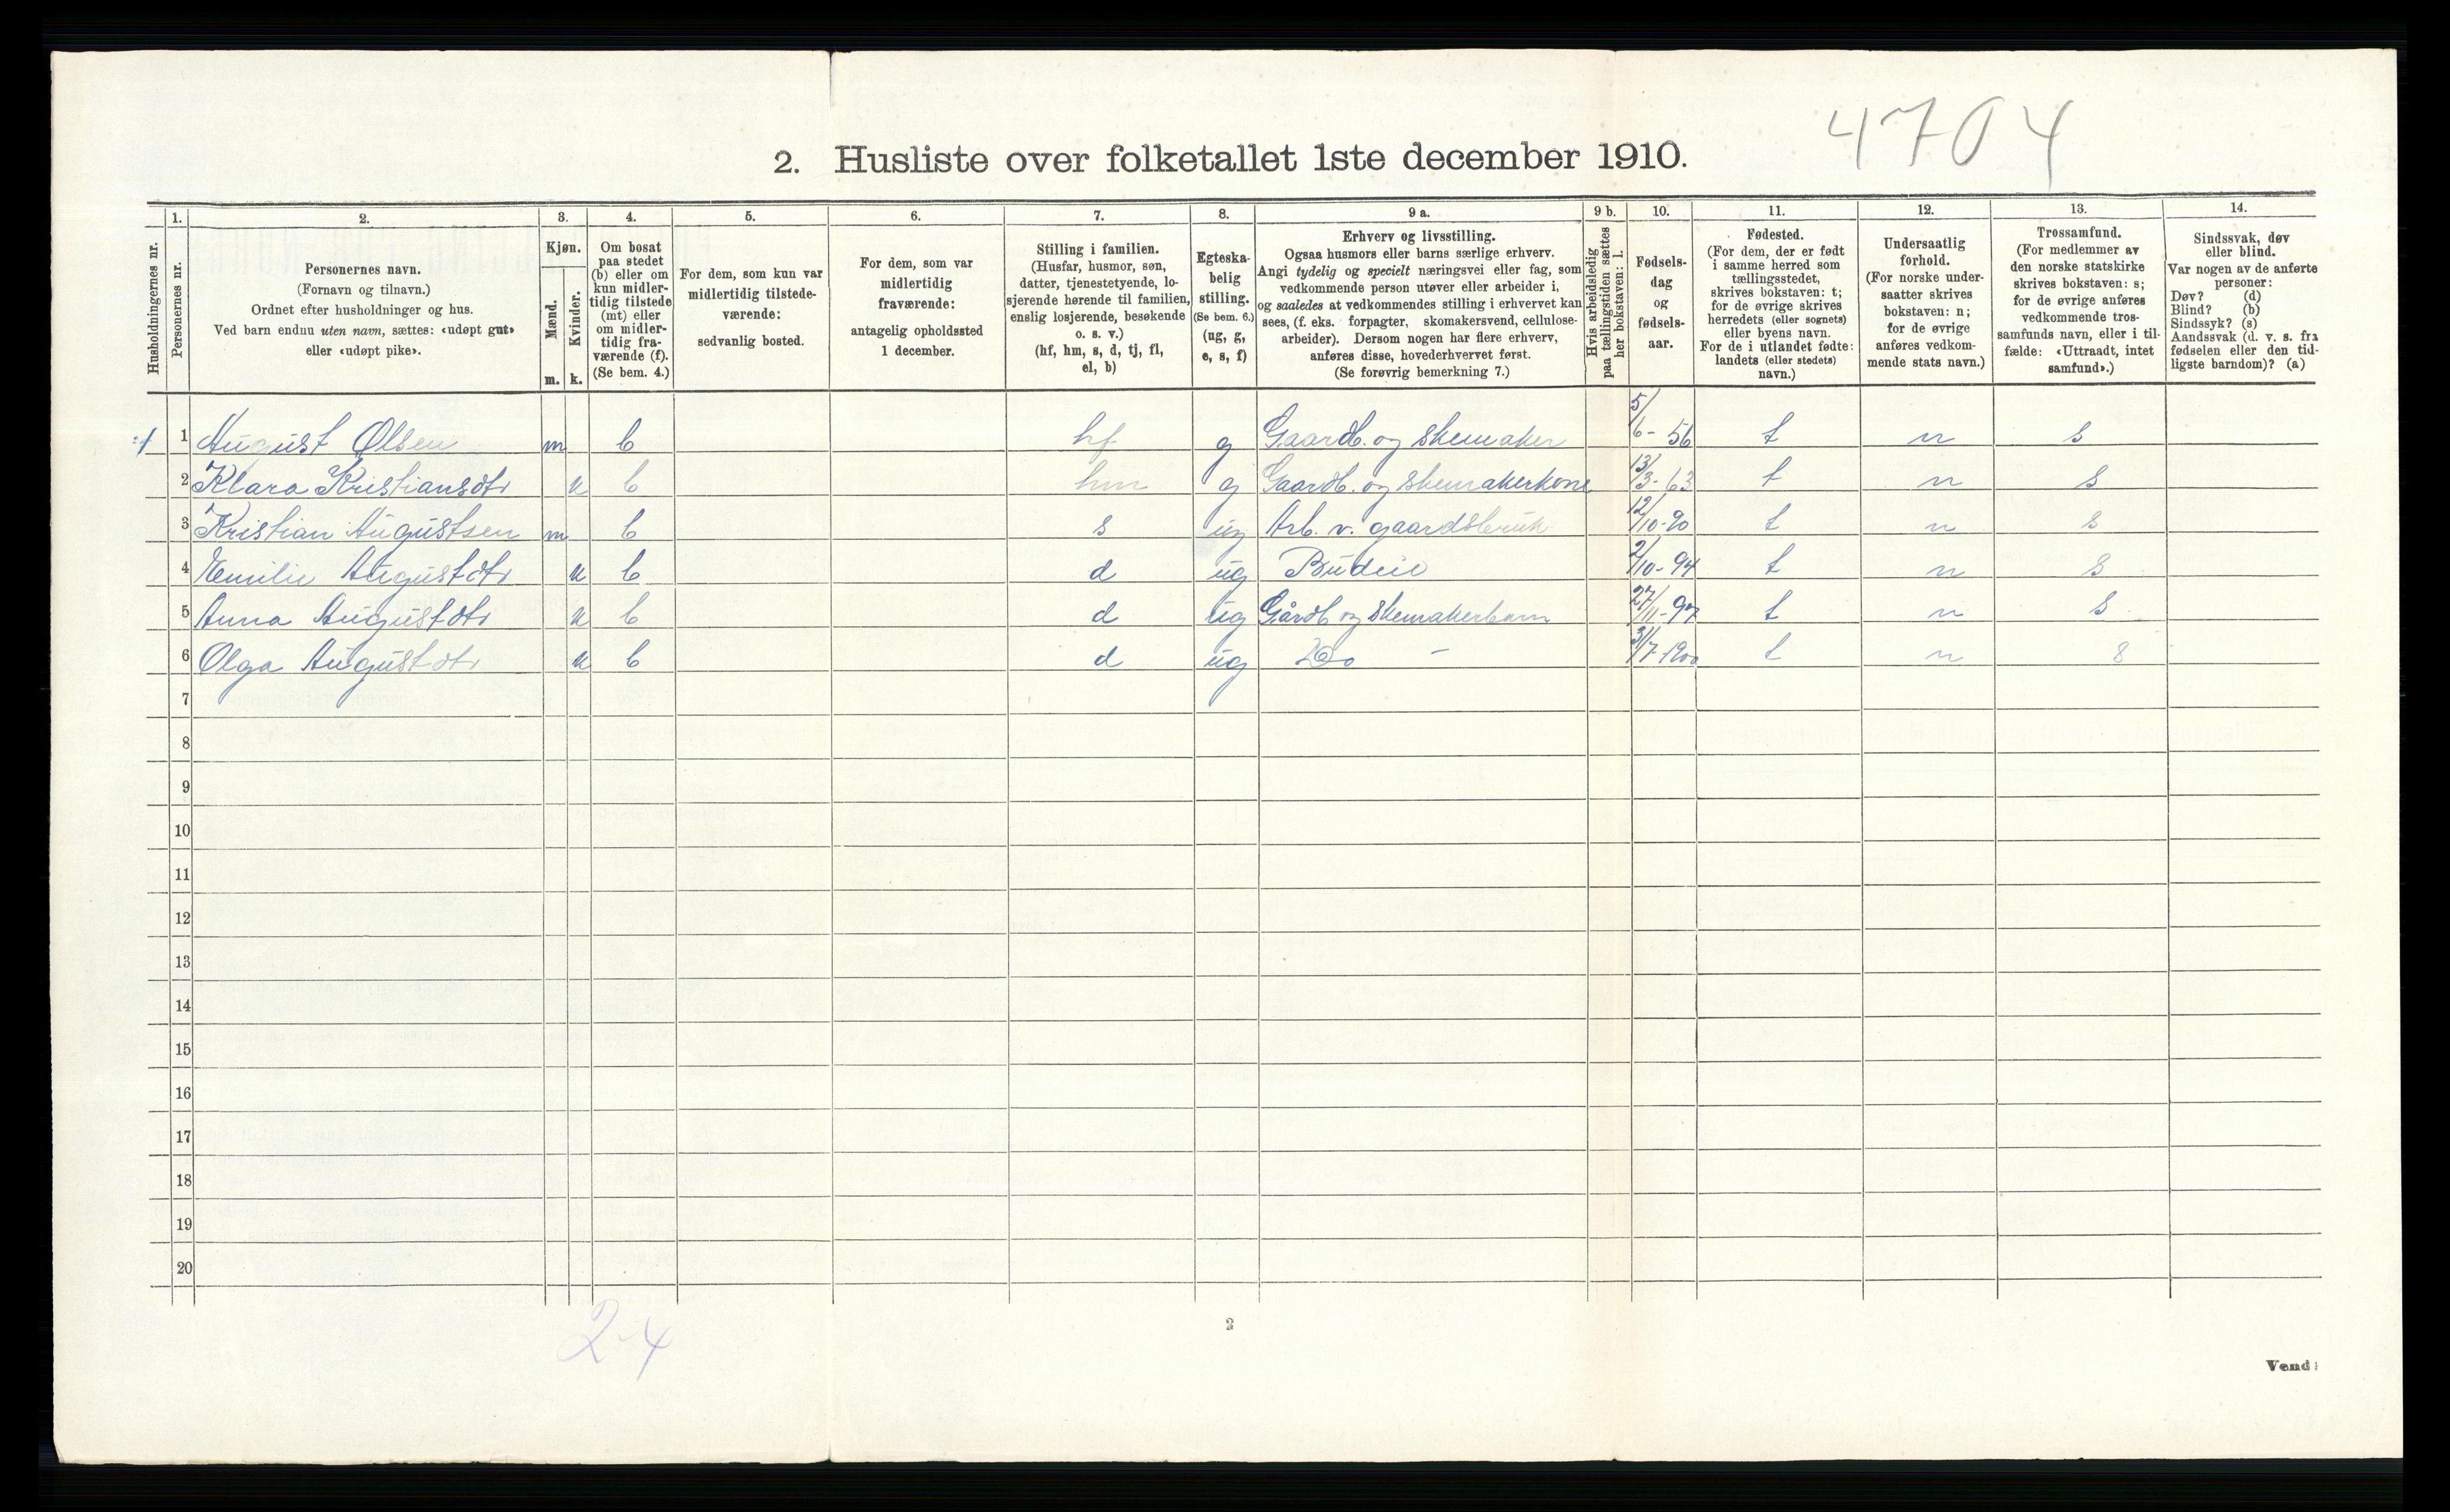 4704
2. Husliste over folketallet 1ste december 1910.
Husholdningernes nr.
1.
Personernes nr.
2.
Personernes navn.
(Fornavn og tilnavn.)
Ordnet efter husholdninger og hus.
Ved barn endnu uten navn, sættes: «udøpt gut»
eller «udøpt pike».
3.
Kjøn.
Mænd.
Kvinder.
m. k.
4.
Om bosat
paa stedet
(b) eller om
kun midler-
tidig tilstede
(mt) eller
om midler-
tidig fra-
værende (f).
(Se bem. 4.)
5.
For dem, som kun var
midlertidig tilstede-
værende:
sedvanlig bosted.
6.
For dem, som var
midlertidig
fraværende:
antagelig opholdssted
1 december.
7.
Stilling i familien.
(Husfar, husmor, søn,
datter, tjenestetyende, lo-
sjerende hørende til familien,
enslig losjerende, besøkende
o. s. v.)
(hf, hm, s, d, tj, fl,
el, b)
8.
Egteska-
belig
stilling.
(Se bem. 6.)
(ug, g,
e, s, f)
9 a.
Erhverv og livsstilling.
Ogsaa husmors eller barns særlige erhverv.
Angi tydelig og specielt næringsvei eller fag, som
vedkommende person utøver eller arbeider i,
og saaledes at vedkommendes stilling i erhvervet kan
sees, (f. eks. forpagter, skomakersvend, cellulose-
arbeider). Dersom nogen har flere erhverv,
anføres disse, hovederhvervet først.
(Se forøvrig bemerkning 7.)
9 b.
Hvis arbeidsledig
paa tællingstiden sættes
her bokstaven: l.
10.
Fødsels-
dag
og
fødsels-
aar.
11.
Fødested.
(For dem, der er født
i samme herred som
tællingsstedet,
skrives bokstaven: t;
for de øvrige skrives
herredets (eller sognets)
eller byens navn.
For de i utlandet fødte:
landets (eller stedets)
navn.)
12.
Undersaatlig
forhold.
(For norske under-
saatter skrives
bokstaven: n;
for de øvrige
anføres vedkom-
mende stats navn.)
13.
Trossamfund.
(For medlemmer av
den norske statskirke
skrives bokstaven: s;
for de øvrige anføres
vedkommende tros-
samfunds navn, eller i til-
fælde: «Uttraadt, intet
samfund».)
14.
Sindssvak, døv
eller blind.
Var nogen av de anførte
personer:
Døv? (d)
Blind? (b)
Sindssyk? (s)
Aandssvak (d. v. s. fra
fødselen eller den tid-
ligste barndom)? (a)
1 August Olsen m b hf g Gaardb. og skomaker 5/6-56 t n s
2 Klara Kristiansdtr k b hm g Gaardb. og skomakerkone 13/3-63 t n s
3 Kristian Augustsen m b s ug Arb. v. gaardsbruk 12/10-90 t n s
4 Emilie Augustdtr k b d ug Budeie 2/10-94 t n s
5 Anna Augustdtr k b d ug Gårdb og skomakerbarn 27/11-97 t n s
6 Olga Augustdtr k b d ug Do - 31/7-1900 t n s
7
8
9
10
11
12
13
14
15
16
17
18
19
20
2-4
2
Vend!